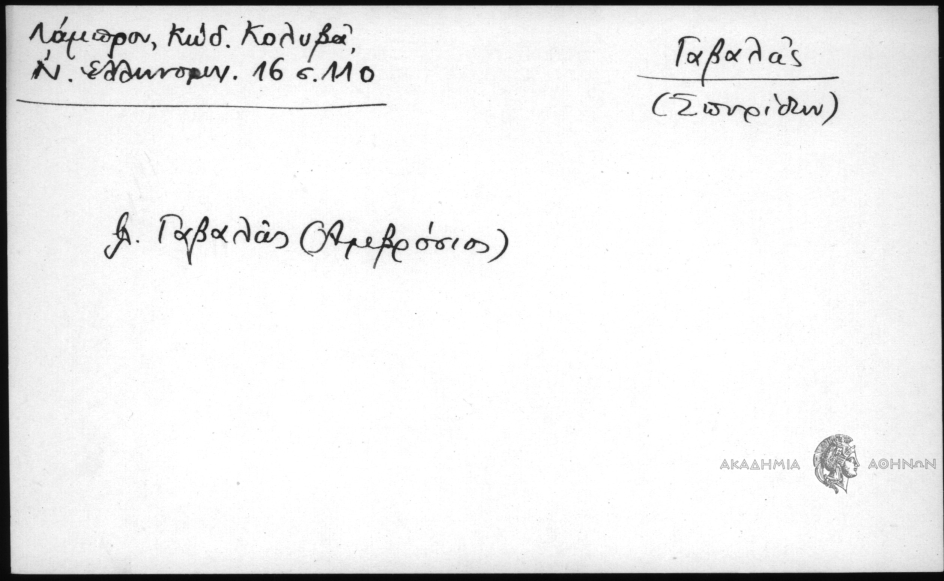 Λάμπρου, Κώδ. Κολυβᾶ,
Ν. Ἑλληνομν. 16 σ. 110
Γαβαλᾶς
(Σπυρίδων)
βλ. Γαβαλᾶς (Ἀμβρόσιος)
ΑΚΑΔΗΜΙΑ ΑΘΗΝΩΝ